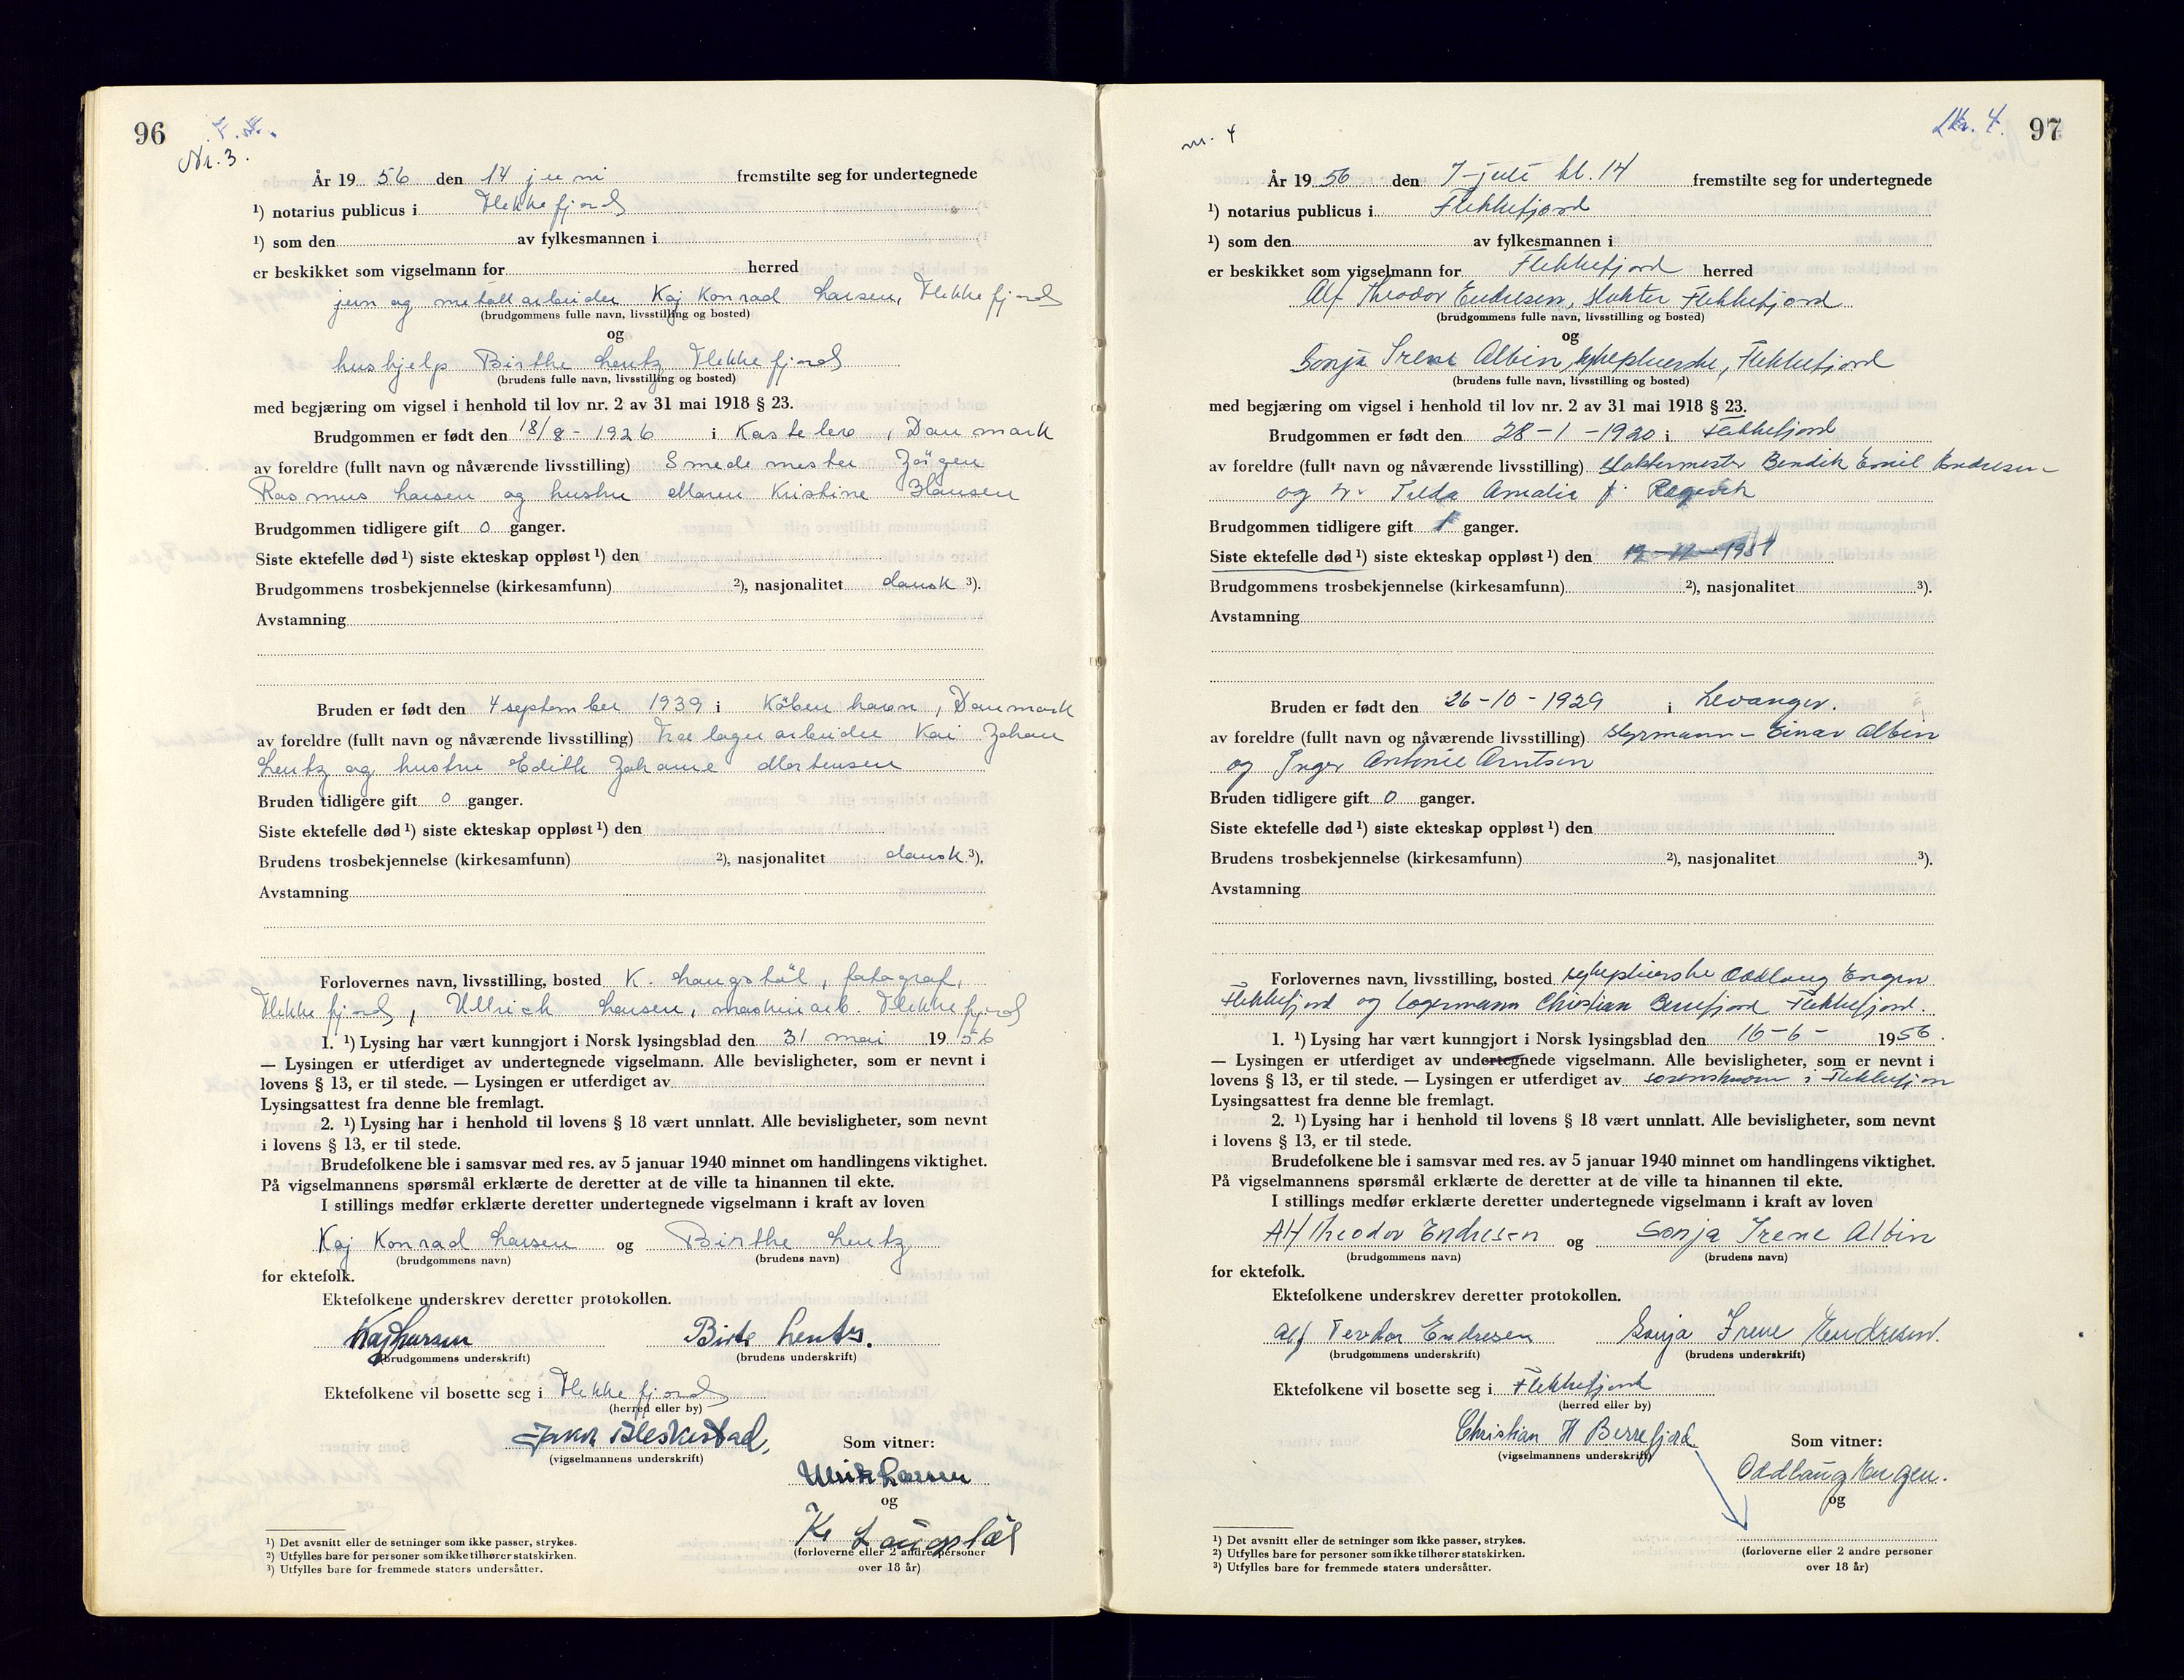 96
Nr. 3.
År 19 56 den 14 juni fremstilte seg for undertegnede
1) notarius publicus i Flekkefjord
1) som den av fylkesmannen i
er beskikket som vigselmann for herred
jern og metallarbeider Kaj Konrad Larsen, Flekkefjord
(brudgommens fulle navn, livsstilling og bosted)
og
hushjelp Birthe Lentz Flekkefjord
(brudens fulle navn, livsstilling og bosted)
med begjæring om vigsel i henhold til lov nr. 2 av 31 mai 1918 § 23.
Brudgommen er født den 18/8 - 1926 i Kastelev, Danmark
av foreldre (fullt navn og nåværende livsstilling) Smedemester Jörgen
Rasmus Larsen og hustru Maren Kristine Hansen
Brudgommen tidligere gift 0 ganger.
Siste ektefelle død 1) siste ekteskap oppløst 1) den
Brudgommens trosbekjennelse (kirkesamfunn) 2), nasjonalitet dansk 3).
Avstamning
Bruden er født den 4 september 1939 i Köbenhavn, Danmark
av foreldre (fullt navn og nåværende livsstilling) Trelagerarbeider Kai Johan
Lentz og hustru Edith Johanne Mortensen
Bruden tidligere gift 0 ganger.
Siste ektefelle død 1) siste ekteskap oppløst 1) den
Brudens trosbekjennelse (kirkesamfunn) 2), nasjonalitet dansk 3).
Avstamning
Forlovernes navn, livsstilling, bosted K. Langstöl, fotograf,
Flekkefjord, Ullrich Larsen, maskinarb. Flekkefjord
1. 1) Lysing har vært kunngjort i Norsk lysingsblad den 31 mai 19 56
— Lysingen er utferdiget av undertegnede vigselmann. Alle bevisligheter, som er nevnt i
lovens § 13, er til stede. — Lysingen er utferdiget av
Lysingsattest fra denne ble fremlagt.
2. 1) Lysing har i henhold til lovens § 18 vært unnlatt. Alle bevisligheter, som nevnt
i lovens § 13, er til stede.
Brudefolkene ble i samsvar med res. av 5 januar 1940 minnet om handlingens viktighet.
På vigselmannens spørsmål erklærte de deretter at de ville ta hinannen til ekte.
I stillings medfør erklærte deretter undertegnede vigselmann i kraft av loven
Kaj Konrad Larsen og Birthe Lentz
(brudgommens navn) (brudens navn)
for ektefolk.
Ektefolkene underskrev deretter protokollen.
Kaj Larsen Birte Lentz.
(brudgommens underskrift) (brudens underskrift)
Ektefolkene vil bosette seg i Flekkefjord
(herred eller by)
(vigselmannens underskrift)
Som vitner:
Ulrik Larsen
og
K. Langstöl
(forloverne eller 2 andre personer
over 18 år)
1) Det avsnitt eller de setninger som ikke passer, strykes.
2) Utfylles bare for personer som ikke tilhører statskirken.
3) Utfylles bare for fremmede staters undersåtter.
nr. 4
Nr. 4. 97
År 19 56 den 7 - juli kl. 14 fremstilte seg for undertegnede
1) notarius publicus i Flekkefjord
1) som den av fylkesmannen i
er beskikket som vigselmann for Flekkefjord herred
Alf Theodor Endresen, slakter Flekkefjord
(brudgommens fulle navn, livsstilling og bosted)
og
Sonja Irene Albin, sykepleierske, Flekkefjord
(brudens fulle navn, livsstilling og bosted)
med begjæring om vigsel i henhold til lov nr. 2 av 31 mai 1918 § 23.
Brudgommen er født den 28 - 1 - 1920 i Flekkefjord
av foreldre (fullt navn og nåværende livsstilling) slaktermester Bendik Emil Endresen
og h. Tilda Amalie f.
Brudgommen tidligere gift 1 ganger.
Siste ektefelle død 1) siste ekteskap oppløst 1) den
Brudgommens trosbekjennelse (kirkesamfunn) 2), nasjonalitet 3).
Avstamning
Bruden er født den 26 - 10 - 1929 i Levanger.
av foreldre (fullt navn og nåværende livsstilling) styrmann - Einar Albin
og Inger Antonie Arntsen
Bruden tidligere gift 0 ganger.
Siste ektefelle død 1) siste ekteskap oppløst 1) den
Brudens trosbekjennelse (kirkesamfunn) 2), nasjonalitet 3).
Avstamning
Forlovernes navn, livsstilling, bosted sykepleierske Oddlaug Engen
Flekkefjord og lagermann Christian Berrefjord Flekkefjord.
1. 1) Lysing har vært kunngjort i Norsk lysingsblad den 16 - 6 - 19 56.
— Lysingen er utferdiget av undertegnede vigselmann. Alle bevisligheter, som er nevnt i
lovens § 13, er til stede. — Lysingen er utferdiget av sorenskriveren i Flekkefjord
Lysingsattest fra denne ble fremlagt.
2. 1) Lysing har i henhold til lovens § 18 vært unnlatt. Alle bevisligheter, som nevnt
i lovens § 13, er til stede.
Brudefolkene ble i samsvar med res. av 5 januar 1940 minnet om handlingens viktighet.
På vigselmannens spørsmål erklærte de deretter at de ville ta hinannen til ekte.
I stillings medfør erklærte deretter undertegnede vigselmann i kraft av loven
Alf Theodor Endresen og Sonja Irene Albin
(brudgommens navn) (brudens navn)
for ektefolk.
Ektefolkene underskrev deretter protokollen.
Alf Teodor Endresen Sonja Irene Endresen.
(brudgommens underskrift) (brudens underskrift)
Ektefolkene vil bosette seg i Flekkefjord
(herred eller by)
Christian H Berrefjord
(vigselmannens underskrift)
Som vitner:
Oddlaug Engen.
og
(forloverne eller 2 andre personer
over 18 år)
1) Det avsnitt eller de setninger som ikke passer, strykes.
2) Utfylles bare for personer som ikke tilhører statskirken.
3) Utfylles bare for fremmede staters undersåtter.